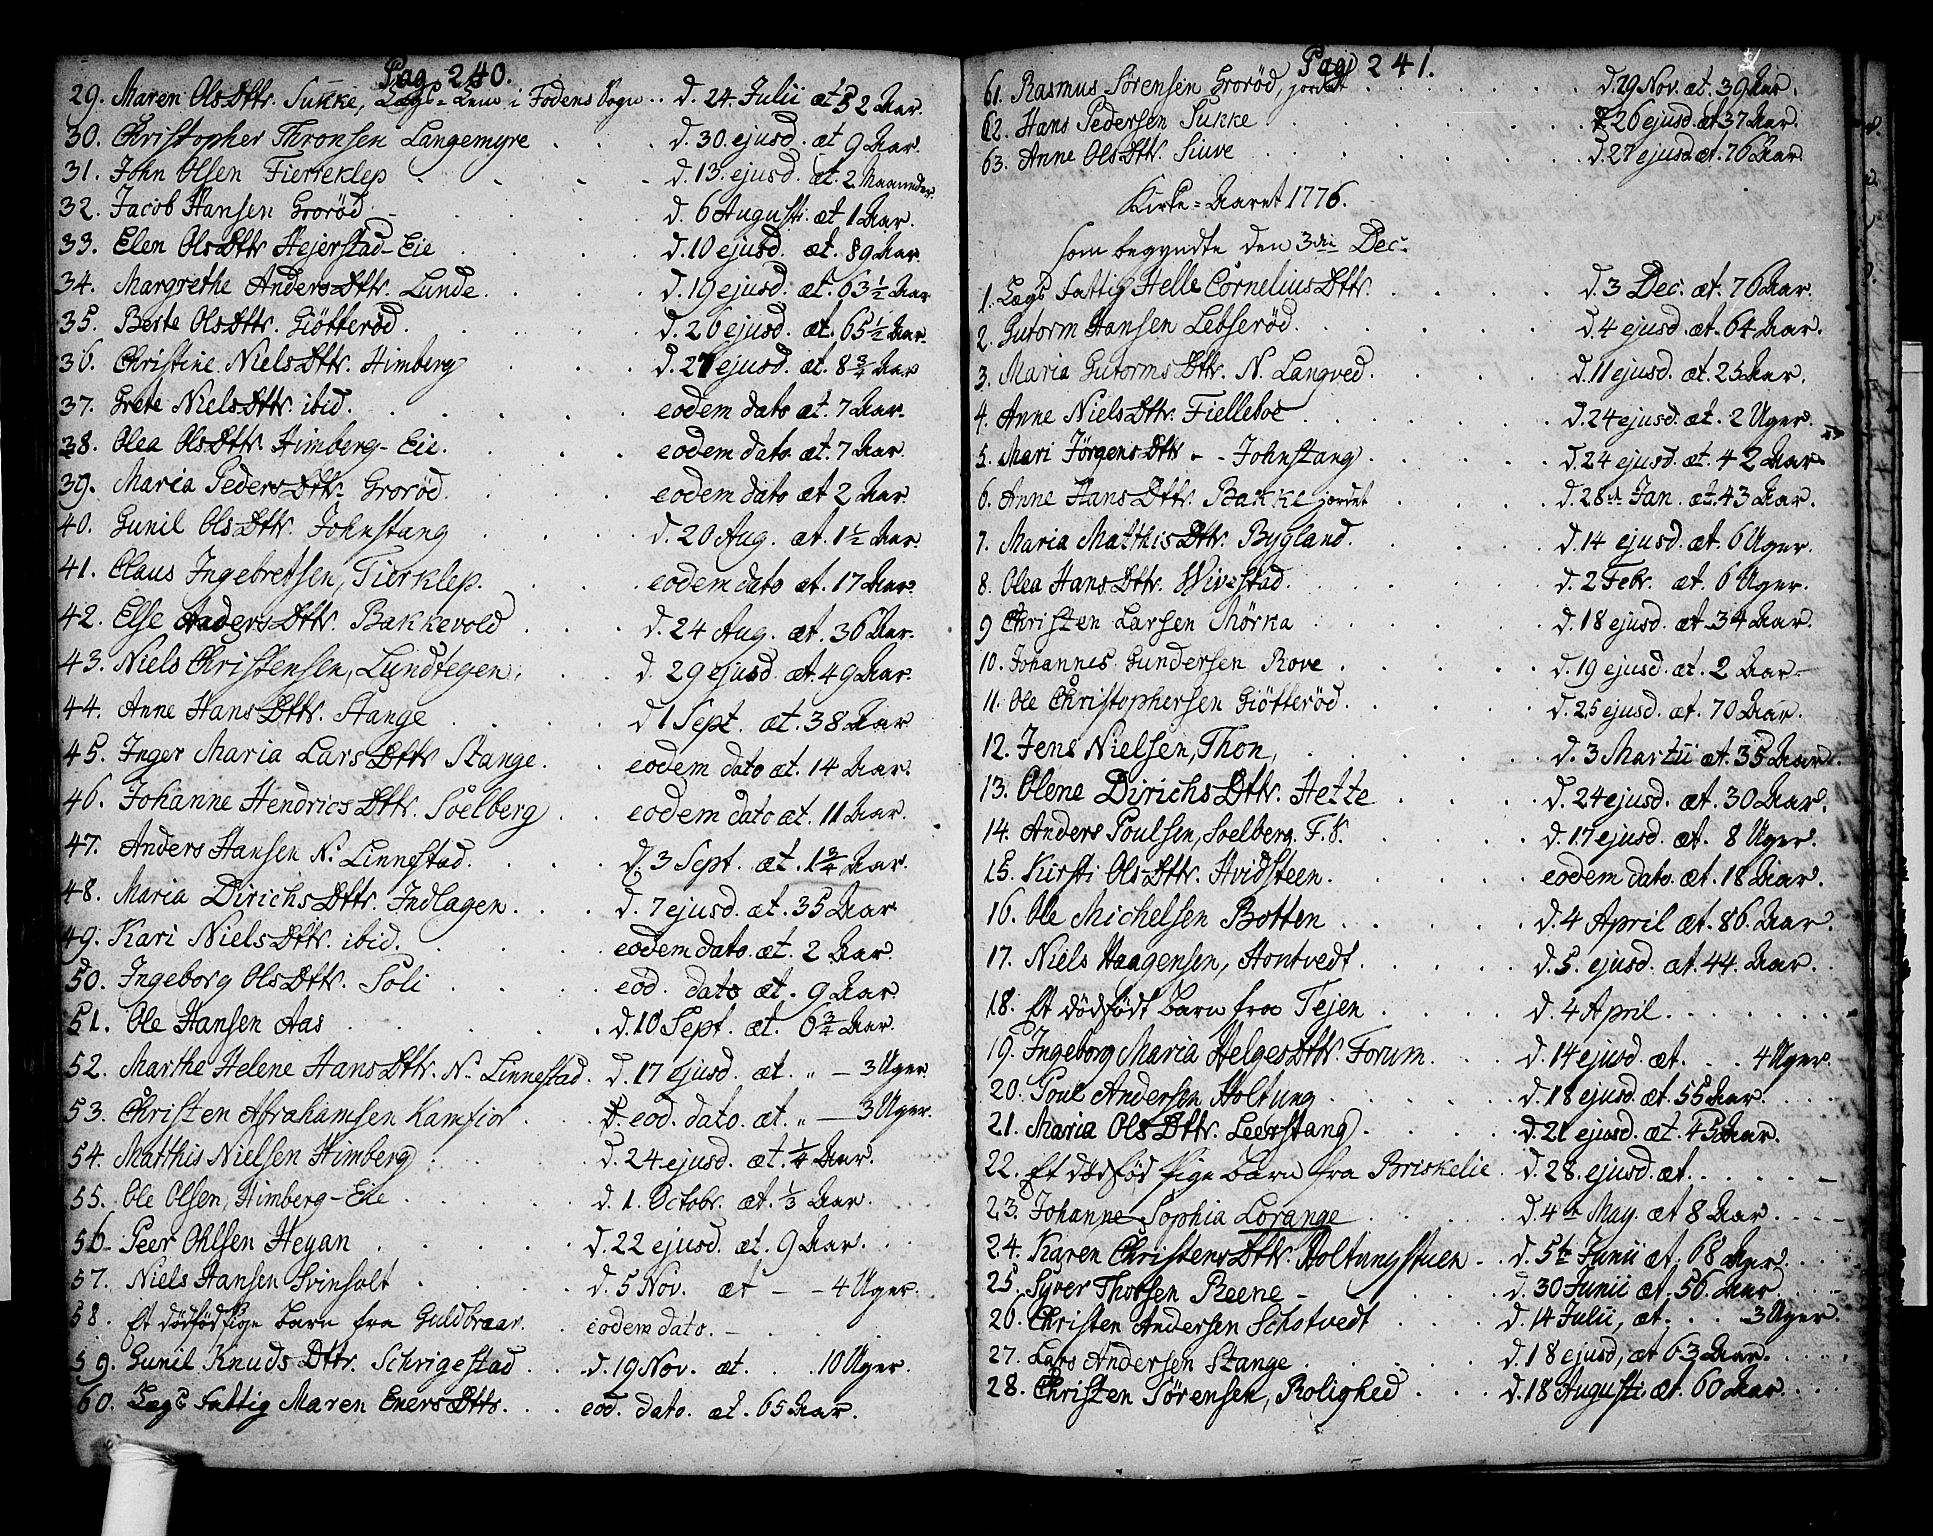 Pag. 240.
29. Maren OlsDttr. Sukke, Lægs-Lem i Fodens Sogn .. d. 24 Julii æt 52 Aar.
30. Christopher Thronsen Langemyre . . . d. 30 ejusd. æt 9 Aar.
31. John Olsen Fierreklep . . . d. 13. ejusd. æt. 2 Maaneder.
32. Jacob Hansen Grorød . . . d. 6 Augusti æt 1 Aar.
33. Elen OlsDttr Hejerstad-Eie . . . d. 10 ejusd. æt. 89 Aar.
34. Margrethe AndersDttr. Lunde . . . d. 19 ejusd. æt. 63 1/2 Aar
35. Berte OlsDttr. Giøtterød . . . d. 26 ejusd. æt. 65 1/2 Aar.
36. Christine NielsDttr. Himberg . . . d. 27 ejusd. æt. 8 3/4 Aar
37. Grete NielsDttr. ibid. . . . eodem dato æt. 7 Aar.
38. Olea OlsDttr. Himberg-Eie. . . . eodem dato æt. 7 Aar.
39. Maria PedersDttr. Grorød. . . . eodem dato æt 2 Aar.
40. Gunil OlsDttr. Johnstang . . . d. 20 Aug. æt. 1 1/2 Aar.
41. Claus Ingebretsen, Fierklep. . . . eodem dato æt. 17 Aar.
42. Else AndersDttr. Bakkevold . . . d. 24 Aug. æt. 36 Aar.
43. Niels Christensen, Lundtegen, . . . d. 29 ejusd æt. 49 Aar.
44. Anne HansDttr. Stange . . . d 1 Sept. æt. 38 Aar
45. Inger Maria LarsDttr Stange. . . eodem dato æt. 14 Aar.
46. Johanne HendricsDttr. Soelberg . . eodem dato æt. 11 Aar.
47. Anders Hansen N. Linnestad. . . . d. 3 Sept. æt. 1 3/4 Aar.
48. Maria DirichsDttr. Indlagen. . . . d. 7 ejusd. æt. 35 Aar
49. Kari NielsDttr. ibid. . . . eodem dato. æt. 2 Aar.
50. Ingeborg OlsDttr. Soli . . . eod. dato æt. 9 Aar
51. Ole Hansen Aas . . . d. 10 Sept. æt. 6 3/4 Aar.
52. Marthe Helene HansDttr. N. Linnestad. d. 17 ejusd. æt. " — 3 Uger
53. Christen Abrahamsen Kamfior . . . eod. dato. æt. " — 3 Uger.
54. Matthis Nielsen Himberg . . . d. 24 ejusd. æt. 1/4 Aar.
55. Ole Olsen, Himberg-Eie . . . d. 1. Octobr. æt. 1/3 Aar.
56. Peer Ohlsen Heyan . . . d. 22 ejusd. æt. 9 Aar.
57. Niels Hansen Svinholt . . . d. 5 Nov. æt - - 4 Uger.
58. Et dødfød Pige barn fra Guldbraar. . eodem dato. -
59. Gunil KnudsDttr. Schrigestad . . d. 19 Nov. æt. . . 10 Uger.
60. Lægs Fattig Maren EnersDttr. . . . eod. dato. æt. 65 Aar.
Pag 241.
61. Rasmus Sørensen Grorød, jordet . . . d. 29 Nov. æt. 39 Aar.
62. Hans Pedersen Sukke . . . 26 ejusd. æt 37 Aar.
63. Anne OlsDttr. Siuve . . . d. 27 ejusd. æt. 76 Aar.
Kirke-Aaret 1776.
som begyndte den 3die Dec.
1. Lægs Fattig Helle CorneliusDttr. . . . d. 3 Dec. æt. 76 Aar.
2. Gutorm Hansen Lebserød. . . . d. 4 ejusd. æt. 64 Aar.
3. Maria GutormsDttr. N. Langved. . . . d. 11 ejusd. æt. 25 Aar.
4. Anne NielsDttr. Fielleboe . . . d. 24 ejusd. æt. 2 Uger.
5. Mari JørgensDttr - - Johnstang . . . d. 24 ejusd. æt. 42 Aar.
6. Anne HansDttr. Bakke jordet . . . d. 28de Jan. æt. 43 Aar.
7. Maria MatthisDttr. Bygland. . . . d. 14 ejusd. æt. 6 Uger.
8. Olea HansDttr. Wivestad. . . . d. 2 Febr. æt. 6 Uger.
9 Christen Larsen Mørka . . . d. 18 ejusd. æt. 34 Aar.
10. Johannes Gundersen Rove . . . d. 19 ejusd. æt. 2 Aar-
11. Ole Christophersen Giøtterød. . . . d. 25 ejusd. æt. 70 Aar.
12. Jens Nielsen, Thon, . . . d. 3 Martii æt. 35 Aar.
13. Olene DirichsDttr. Hette . . . d. 24 ejusd. æt. 30 Aar.
14. Anders Poulsen, Soelberg. F.K. . . . d. 17 ejusd. æt. 8 Uger.
15. Kirsti OlsDttr. Hvidsteen. . . . eodem dato. æt. 18 Aar.
16. Ole Michelsen Botten . . . d. 4 April æt. 86. Aar.
17. Niels Haagensen, Hontvedt . . . d. 5. ejusd. æt. 44. Aar.
18. Et dødfødt barn fra Tejen . . . d. 4 April. . . .
19. Ingeborg Maria HelgesDttr. Forum. . . d. 14 ejusd. æt. . . 4 Uger.
20. Poul Andersen Holtung . . . d. 18 ejusd. æt. 55 Aar.
21. Maria OlsDttr. Leerstang . . . d. 21 ejusd. æt. 45 Aar.
22. Et dødfød Pige barn fra Briskelie . d. 28. ejusd. æt. . . .
23. Johanne Sophia Lorange . . . d. 4de May. æt 8 Aar.
24. Karen ChristensDttr. Holtungstuen . . d. 5te Junii æt. 68 Aar.
25. Syver Thorsen Reene - . . . d. 30 Junii æt. 56. Aar.
26. Christen Andersen Schotvedt . . . d. 14 Julii, æt. . . 3 Uger.
27. Lars Andersen Stange . . . d. 18 ejusd, æt 63 Aar.
28. Christen Sørensen, Rolighed . . . d. 18 Augusti. æt. 60 Aar.